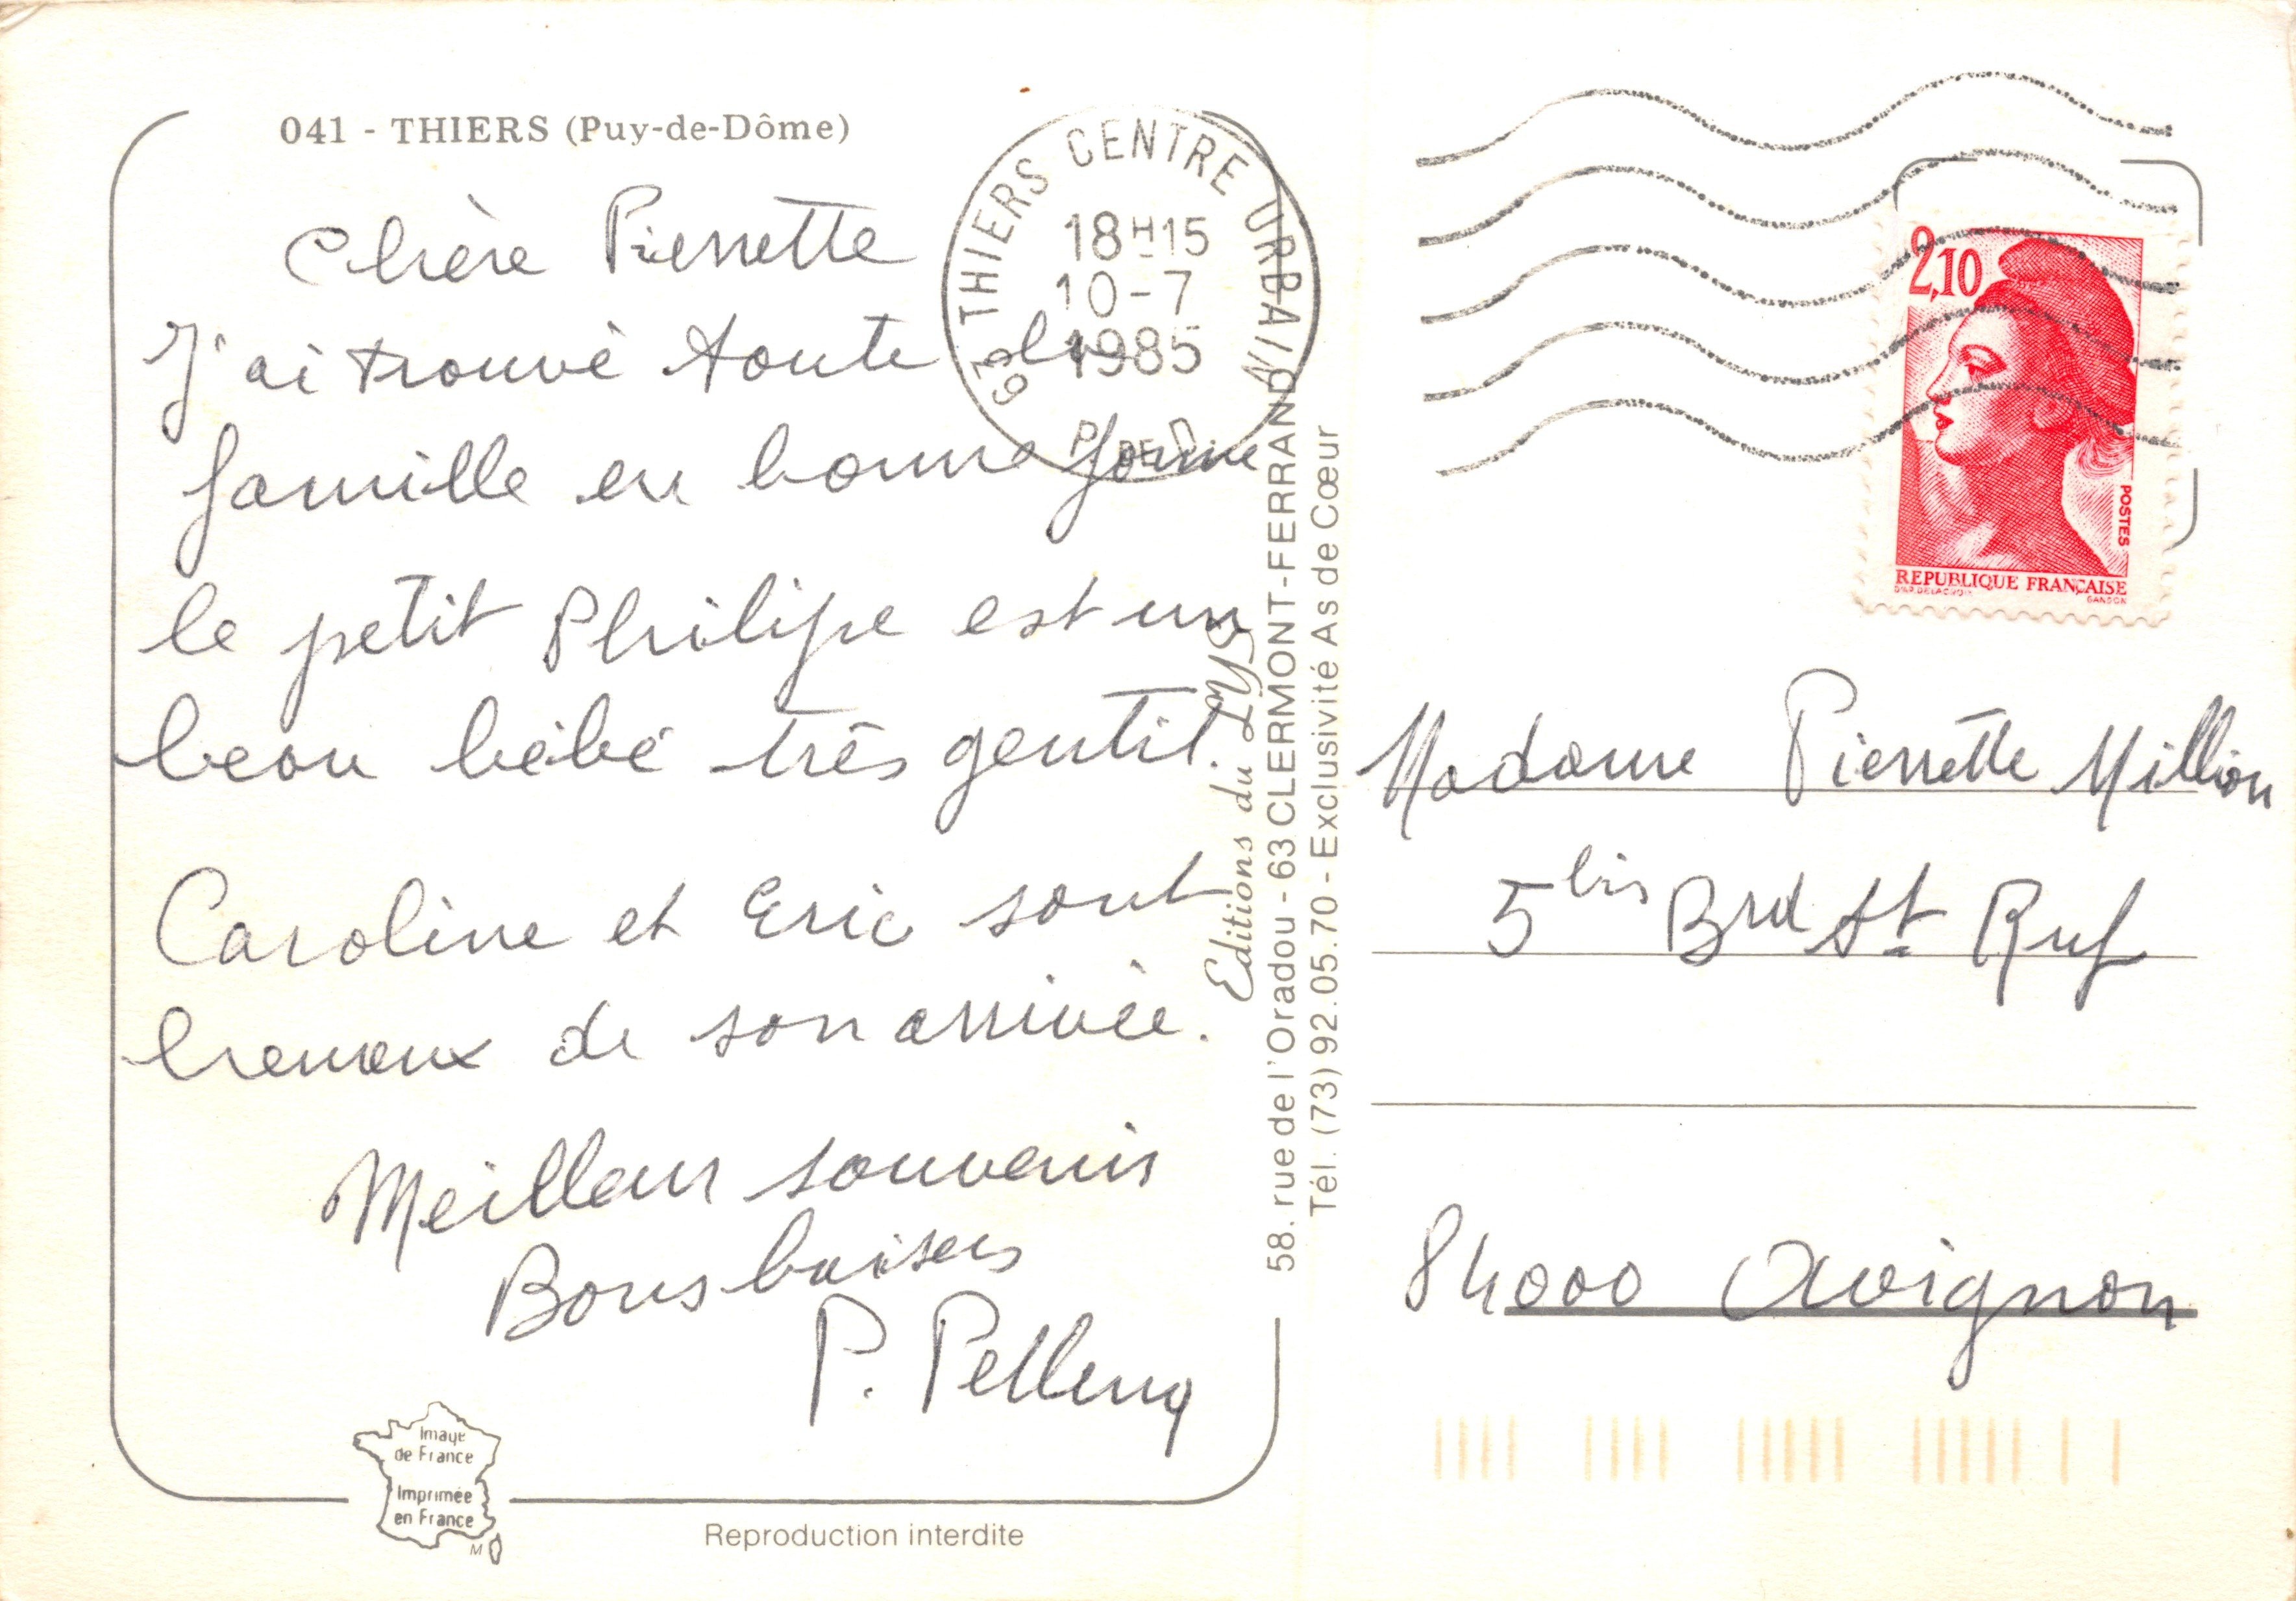 041 - THIERS (Puy-de-Dôme)
Chère Pierrette
J'ai trouvé toute la
famille en bonne forme
le petit Philipe est un
beau bébé très gentil.
Caroline et Eric sont
heureux de son arrivée.
Meilleurs souvenirs
Bons baisers
P. Pellenq
63 THIERS CENTRE URBAIN
18H15
10-7
1985
P. DE D.
Editions du LYS
58. rue de l'Oradou - 63 CLERMONT-FERRAND
Tél. (73) 92.05.70 - Exclusivité As de Cœur
2,10
POSTES
REPUBLIQUE FRANÇAISE
D'AP. DELACROIX GANDON
Madame Pierrette Million
5 bis Brd St Ruf
84000 Avignon
Image
de France
Imprimée
en France
M
Reproduction interdite